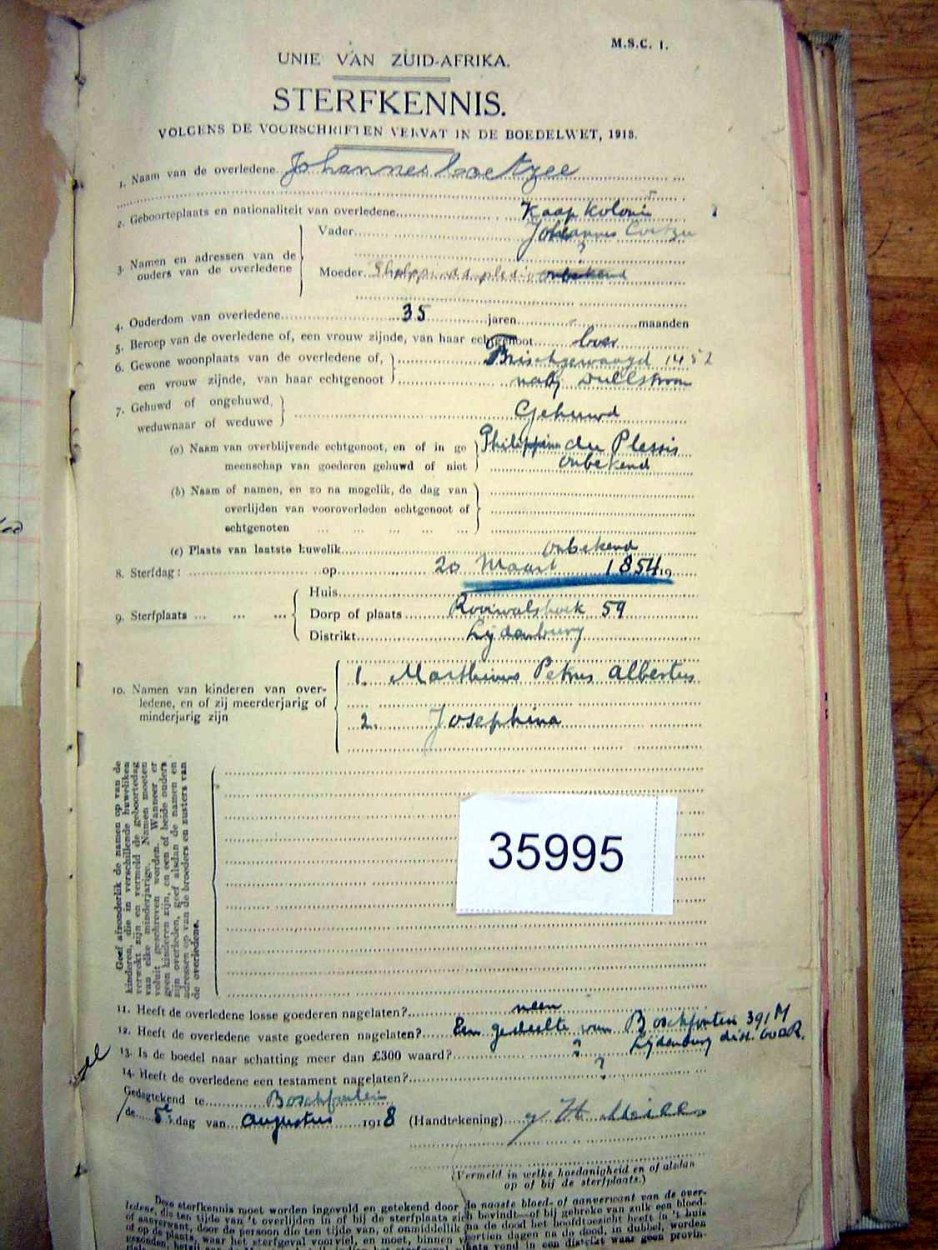 M.S.C. 1.
UNIE VAN ZUID-AFRIKA.
STERFKENNIS.
VOLGENS DE VOORSCHRIFTEN VERVAT IN DE BOEDELWET, 1913.
1. Naam van de overledene Johannes Coetzee
2. Geboorteplaats en nationaliteit van overledene Kaap Kolonie
3. Namen en adressen van de ouders van de overledene
Vader Johannes Coetzee
?
Moeder onbekend
4. Ouderdom van overledene 35 jaren maanden
5. Beroep van de overledene of, een vrouw zijnde, van haar echtgenoot boer
6. Gewone woonplaats van de overledene of, Frischgewaagd 1452
een vrouw zijnde, van haar echtgenoot nabij Dullstroom
7. Gehuwd of ongehuwd, Gehuwd
weduwnaar of weduwe
(a) Naam van overblijvende echtgenoot, en of in ge Philippina du Plessis
meenschap van goederen gehuwd of niet onbekend
(b) Naam of namen, en zo na mogelik, de dag van
overlijden van vooroverleden echtgenoot of
echtgenoten
(c) Plaats van laatste huwelik onbekend
8. Sterfdag: op 20 Maart 1854 19
Huis
9. Sterfplaats Dorp of plaats Rooiwalshoek 59
Distrikt Lijdenburg
10. Namen van kinderen van over-
ledene, en of zij meerderjarig of
minderjarig zijn
1. Matthewis Petrus Albertus
2. Josephina
Geef afzonderlik de namen op van de
kinderen, die in verschillende huweliken
verwekt zijn en vermeld de geboortedag
van elke minderjarige. Namen moeten
voluit geschreven worden. Wanneer er
geen kinderen zijn, en een of beide ouders
zijn overleden, geef alsdan de namen en
adressen op van de broeders en zusters van
de overledene.
35995
11. Heeft de overledene losse goederen nagelaten? neen
12. Heeft de overledene vaste goederen nagelaten? Een gedeelte van Boschfontein 391 M
Lijdenburg dist. waar.
13. Is de boedel naar schatting meer dan £300 waard? ?
14. Heeft de overledene een testament nagelaten? ?
Gedagtekend te Boschfontein
de 5e dag van Augustus 1918 (Handtekening)
(Vermeld in welke hoedanigheid en of alsdan
op of bij de sterfplaats.)
Deze sterfkennis moet worden ingevuld en getekend door de naaste bloed- of aanverwant van de over-
ledene, die ten tijde van 't overlijden in of bij de sterfplaats zich bevindt—of bij gebreke van zulk een bloed-
of aanverwant, door de persoon die ten tijde van, of onmiddellik na de dood het hoofdtoezicht heeft in 't huis
of op de plaats, waar het sterfgeval voorviel, en moet, binnen veertien dagen na de dood, indien